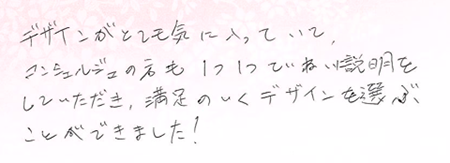 デザインがとても気に入っていて、
コンシェルジュの方も1つ1つていねい説明を
していただき、満足のいくデザインを選ぶ
ことができました!